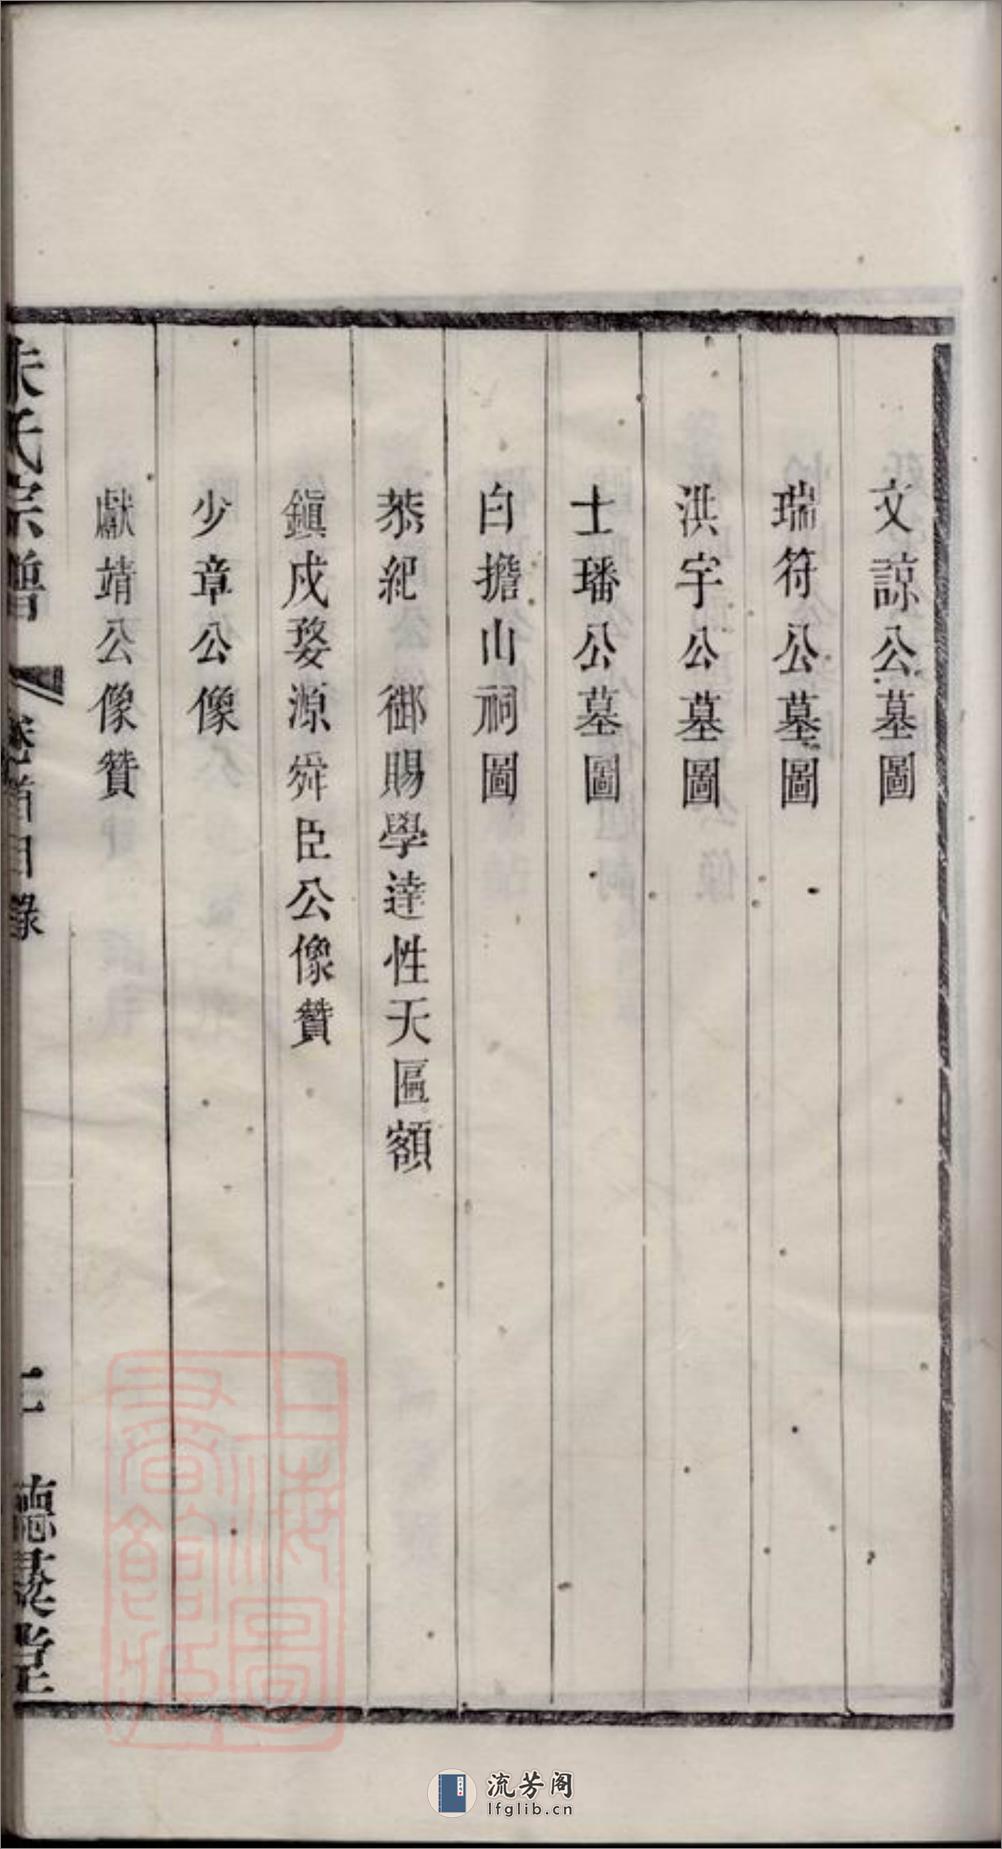 文諒公墓圖
瑞符公墓圖
洪宇公墓圖
士璠公墓圖
白擔山祠圖
恭紀 御賜學達性天匾額
鎮戍婺源舜臣公像贊
少章公像
獻靖公像贊
朱氏宗譜 卷首目錄 二 聽彝堂
上海圖書館藏
流芳阁
lfglib.cn